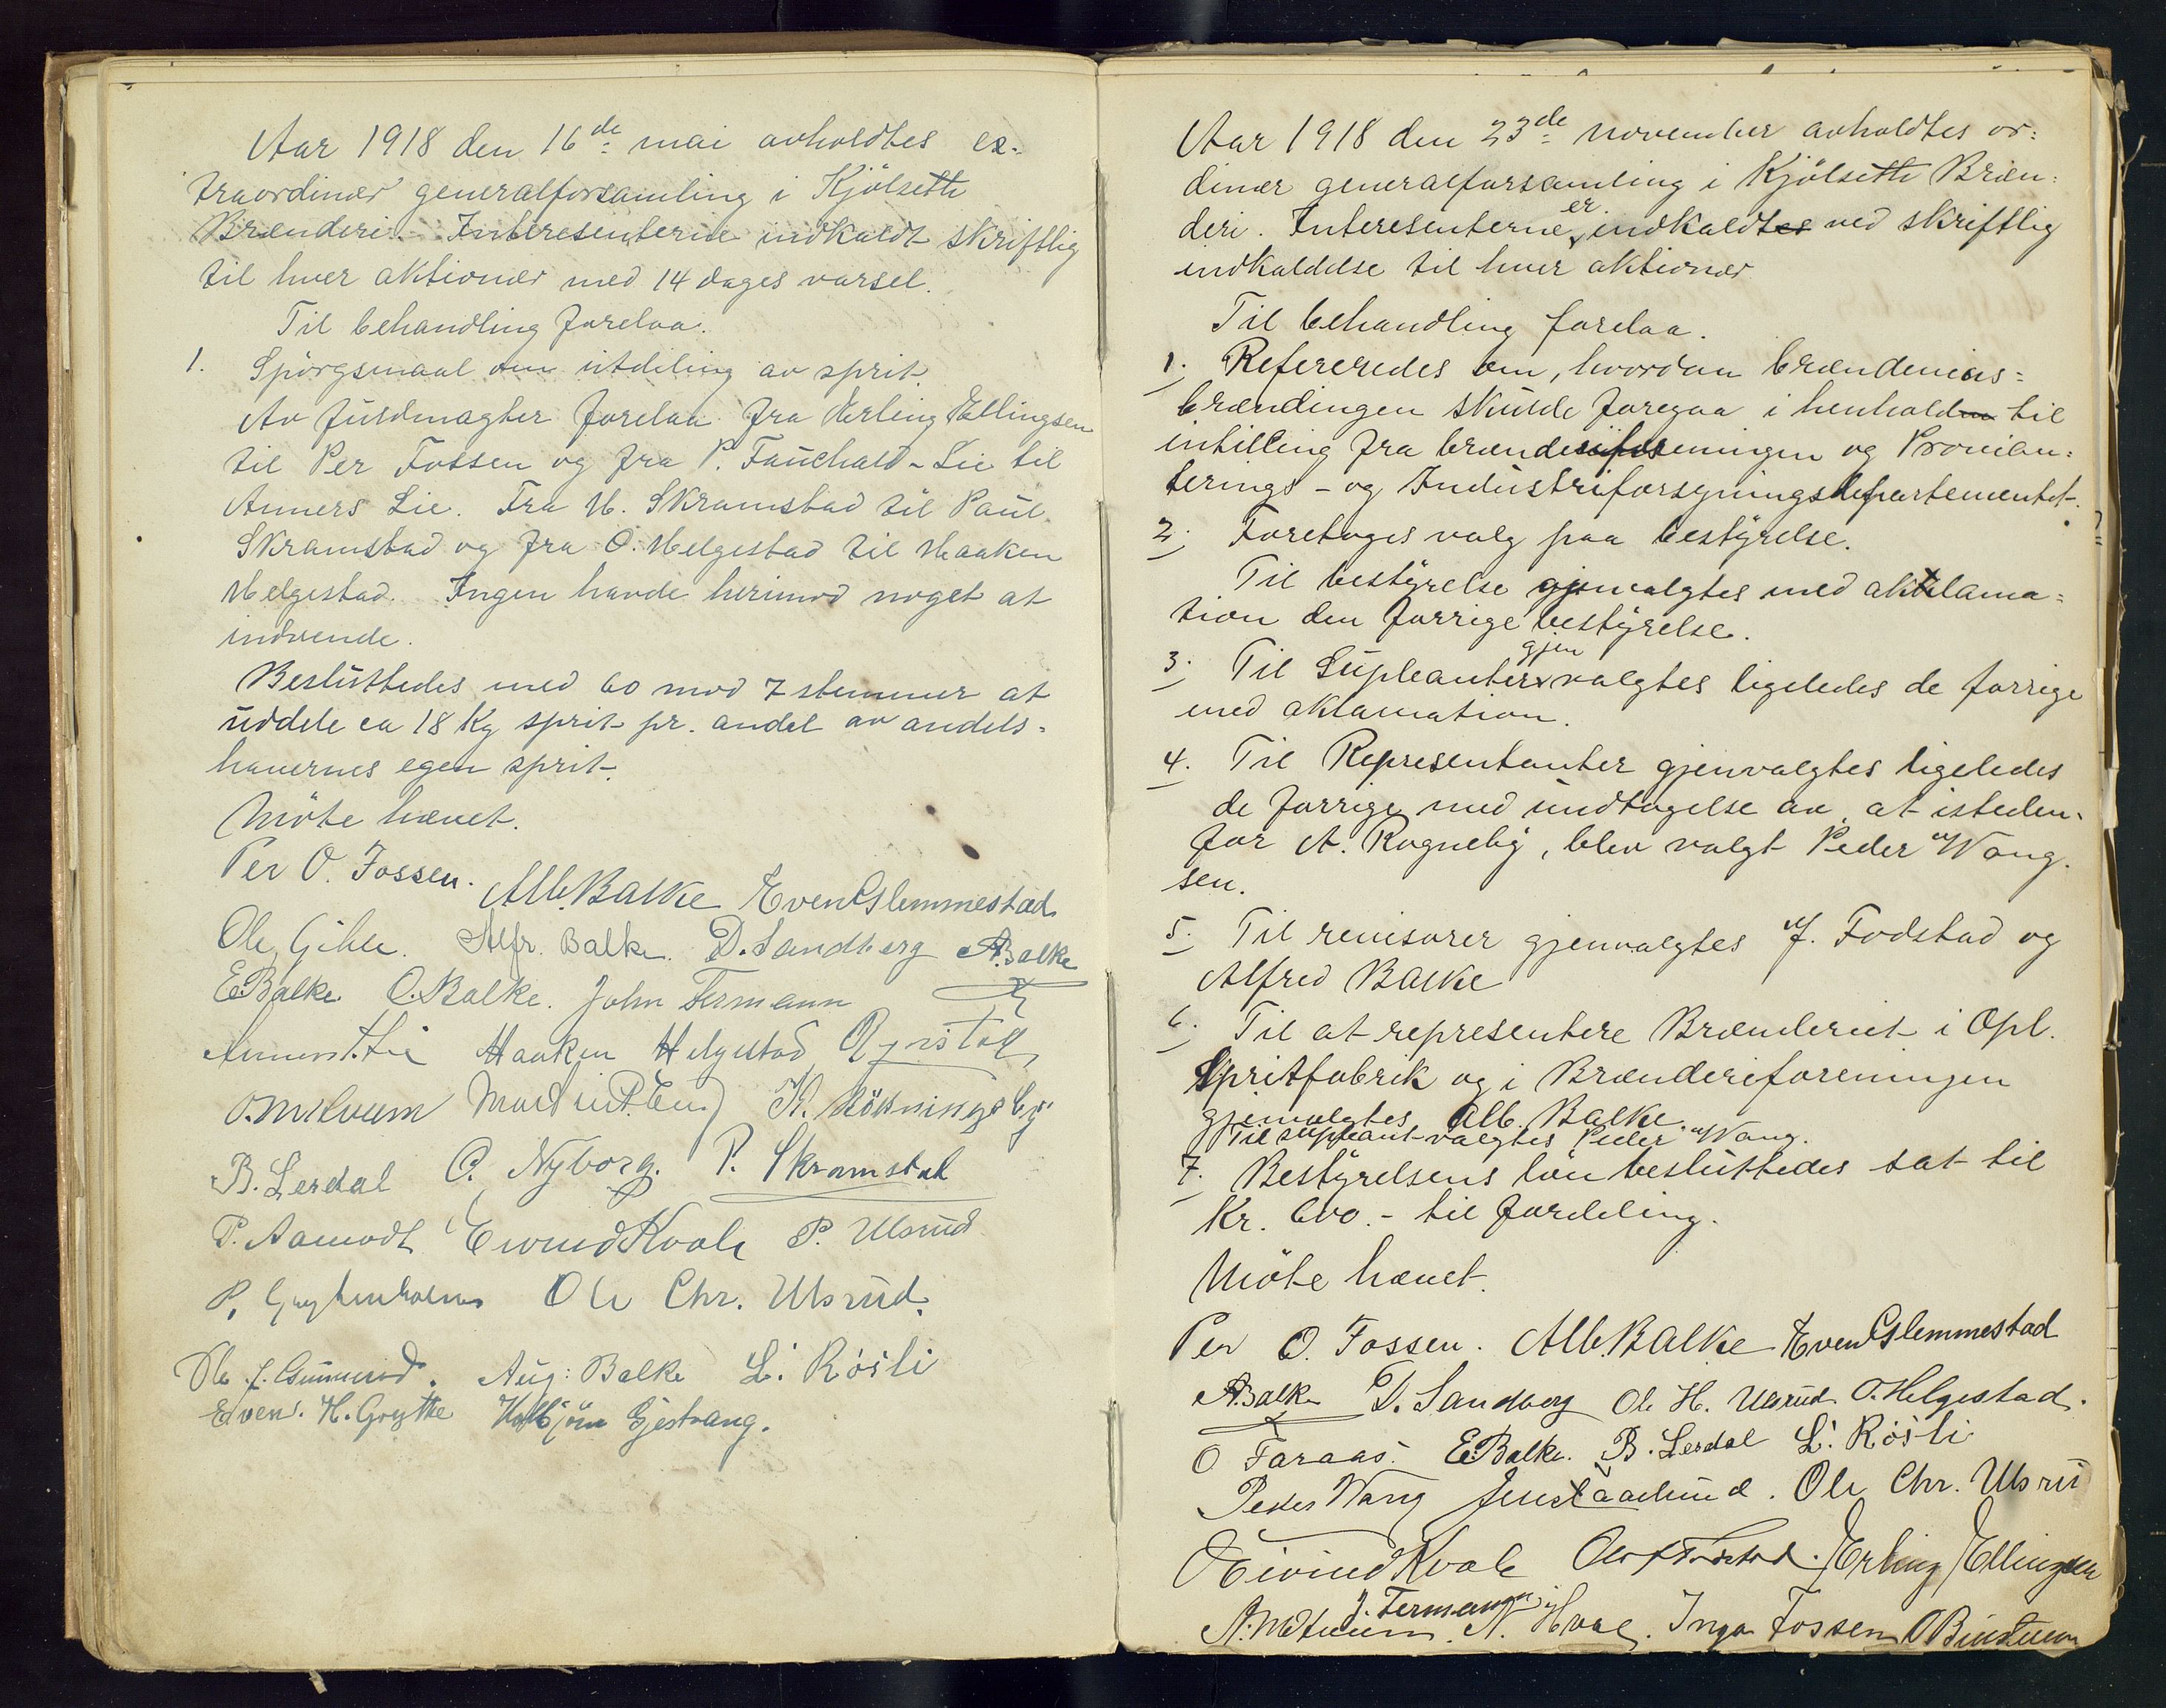 Aar 1918 den 16de mai avholdtes ex-
traordinær generalforsamling i Kjölsette
Brænderi. Interesenterne indkaldt skriftlig
til hver aktionær med 14 dages varsel.
Til behandling forelaa.
1. Spörgsmaal om utdeling av sprit.
Av fuldmagter forelaa fra Erling Ellingsen
til Per Fossen og fra P. Fauchald-Lie til
Anners Lie. Fra H. Skramstad til Paul
Skramstad og fra O. Helgestad til Haaken
Helgestad. Ingen havde herimod noget at
indvende.
Besluttedes med 60 mod 7 stemmer at
uddele ca 18 Kg sprit pr. andel av andels-
havernes egen sprit.
Möte hævet.
Per O. Fossen. Alb. Balke Even Glemmestad
Ole Gihle. Alfr. Balke. D. Sandberg A. Balke
E. Balke O. Balke. John Fermann
Haaken Helgestad
B. Lerdal O. Nyborg. P. Skramstad
P. Aamodt Eivind Kvale P. Ulsrud
P. Ole Chr. Ulsrud.
Aug: Balke L. Rösli
Even. H. Grytte Kolbjörn Gjestvang.
Aar 1918 den 23de november avholdtes or=
dinær generalforsamling i Kjölsette Bræn=
deri. Interesenterne er indkaldtes ved skriftlig
indkaldelse til hver aktionær
Til behandling forelaa.
1. Refereredes om, hvordan brænderiets=
brændingen skulde foregaa i henhold til
intilling fra brænderiforeningen og Provian=
terings- og Industriforsyningsdepartementet.
2. Foretoges valg paa bestyrelse.
Til bestyrelse gjenvalgtes med aklama=
tion den forrige bestyrelse.
3. Til Supleanter gjenvalgtes ligeledes de forrige
med aklamation.
4. Til Representanter gjenvalgtes ligeledes
de forrige med undtagelse av at isteden-
for A. Rogneby, blev valgt Peder Wang.
sen.
5. Til revisorer gjenvalgtes J. Fodstad og
Alfred Balke
6. Til at representere Brænderiet i Opl.
Spritfabrik og i Brænderiforeningen
gjenvalgtes Alb. Balke.
Til supleant valgtes Peder Wang.
7. Bestyrelsens lön besluttedes sat til
Kr. 600.- til fordeling.
Möte hævet.
Per O. Fossen. Alb. Balke Even Glemmestad
A. Balke D. Sandberg Ole H. Ulsrud O. Helgestad.
O Faraas. E. Balke. B. Lerdal L. Rösli
Peder Wang Ole Chr. Ulsru
Eivind Kvale Erling Ellingsen
J. Fermann
N. Hval. Inga Fossen